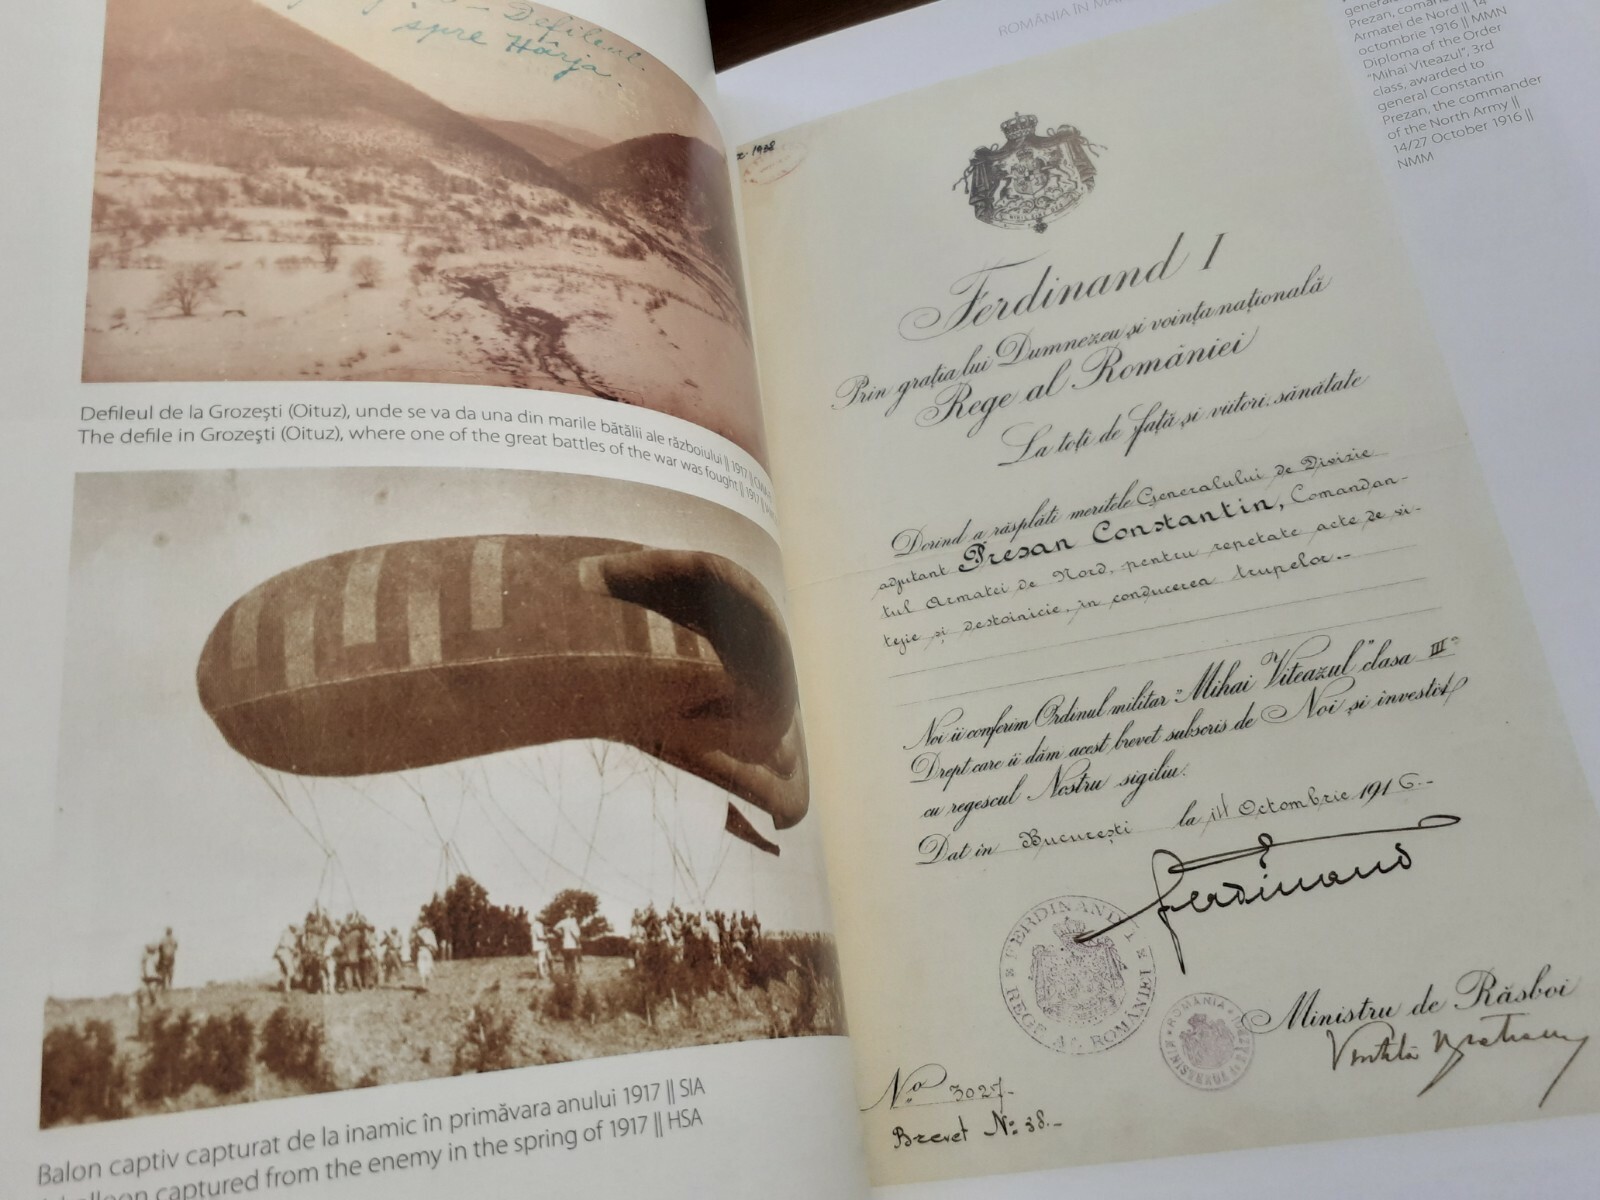 – Defileul
spre Hârja.
Defileul de la Grozeşti (Oituz), unde se va da una din marile bătălii ale războiului || 1917 ||
The defile in Grozeşti (Oituz), where one of the great battles of the war was fought || 1917 ||
Balon captiv capturat de la inamic în primăvara anului 1917 || SIA
captured from the enemy in the spring of 1917 || HSA
ROMÂNIA ÎN
Prezan,
Armatei de Nord || 14
octombrie 1916 || MMN
Diploma of the Order
"Mihai Viteazul", 3rd
class, awarded to
general Constantin
Prezan, the commander
of the North Army ||
14/27 October 1916 ||
NMM
1938
Ferdinand I
Prin grația lui Dumnezeu și voința națională
Rege al României
La toți de față și viitori, sănătate
Dorind a răsplăti meritele Generalului de Divizie
adjutant Presan Constantin, Comandan-
tul Armatei de Nord, pentru repetate acte de vi-
tejie și destoinicie, în conducerea trupelor.--
Noi îi conferim Ordinul militar "Mihai Viteazul" clasa III
Drept care îi dăm acest brevet subscris de Noi și învestit
cu regescul Nostru sigiliu.
Dat în București la Octombrie 1916.-
Ferdinand
FERDINAND I REGE AL ROMÂNIEI
Ministru de Răsboi
ROMANIA MINISTERUL
No 3027.-
Brevet No: 38.-